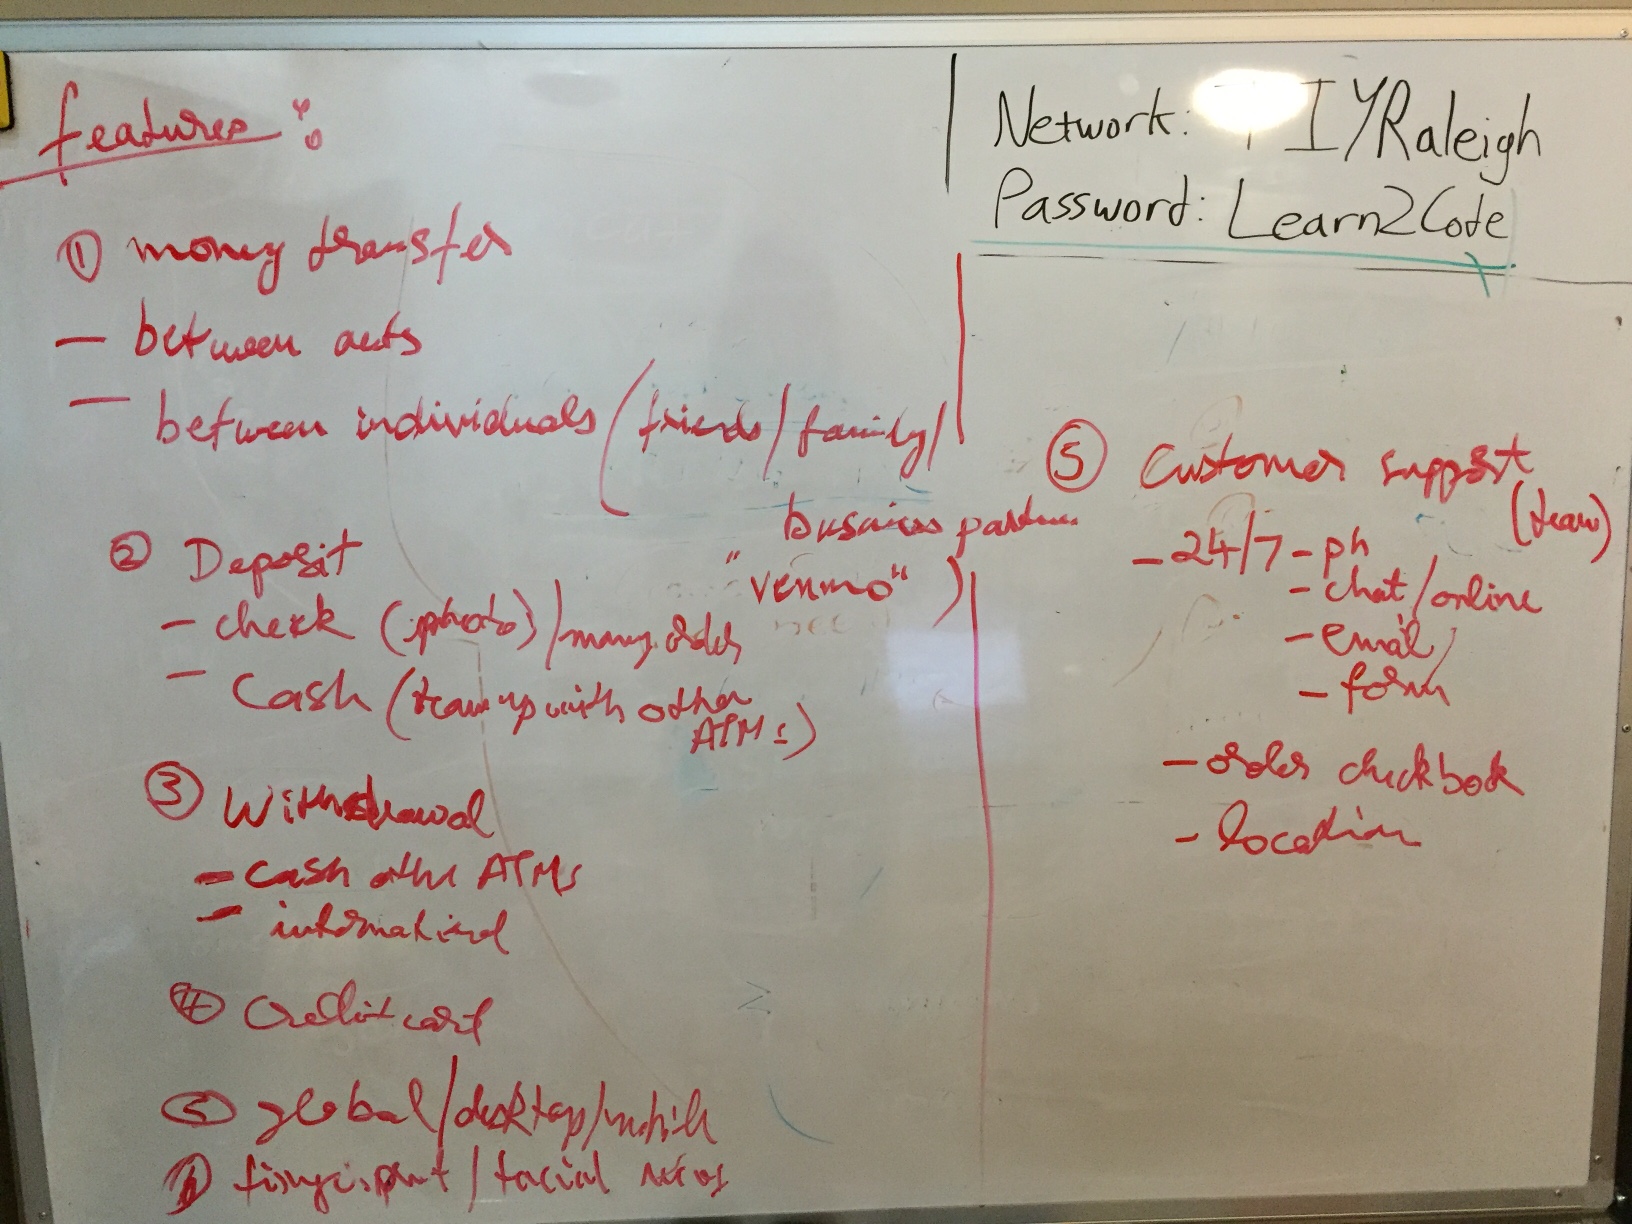 features:
① money transfer
- between acts
- between individuals (friends/family/
business partner
"venmo")
② Deposit
- check (photo)/money order
- Cash (team up with other
ATMs)
③ Withdrawal
- cash other ATMs
- international
④ Credit card
⑤ global/desktop/mobile
fingerprint/facial recog
Network: TIYRaleigh
Password: Learn2Code
⑤ Customer support
(team)
- 24/7 - ph
- chat/online
- email/
- form
- order checkbook
- location